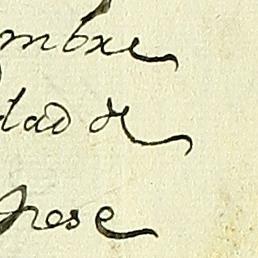 mbre
dad de
rese